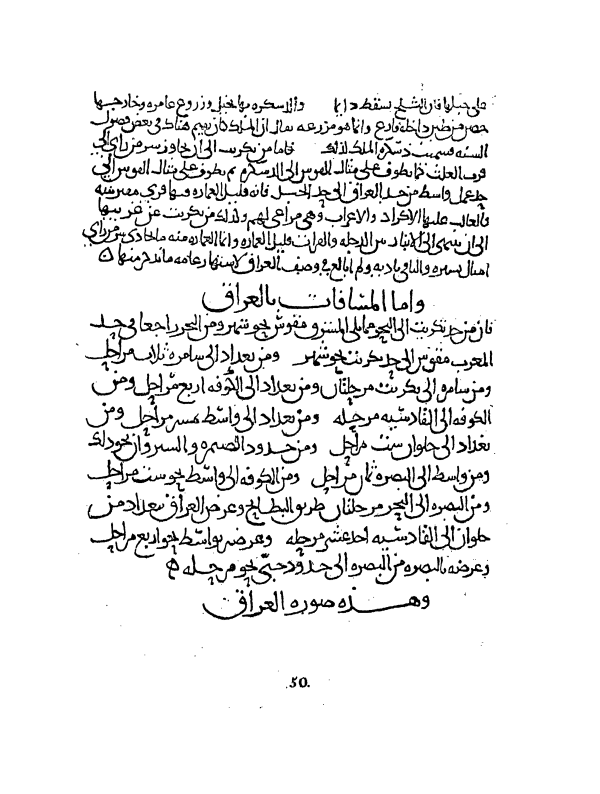 على جبلها فان الثلج يسقط دايما والدسكره بها نخيل وزروع عامره وخارجها
حصن من طين داخله فارغ وانما هو مزرعه يقال ان الملك كان يقيم هناك في بعض فصول
السنه فسميت دسكره الملك لذلك فاما من تكريت الى ان تجاوز سر من راى الى
قرب العلث ثم يطوف على مثال القوس الى الدسكره ثم يطوف على مثال القوس الى
حد عمل واسط من حد العراق الى حد الجبل فانه قليل العماره وبها قرى مفترشه
والغالب عليها الاكراد والاعراب وهي مراعي لهم وكذلك من تكريت عن غربيها
الى ان ينتهى الى الانبار بين الدجله والفرات قليل العماره وانما العماره منه ما يحاذى سر من راى
اميال يسيره والباقى باديه ولم ابالغ في وصف العراق لاستهار عامه ما
واما المسافات بالعراق
فان من حد تكريت الى البحر مما يلى المشرق مقوس نحو شهر ومن البحر راجعا فى حد
المغرب مقوس الى حد تكريت نحو شهر ومن بغداد الى سامره ثلاث مراحل
ومن سامره الى تكريت مرحلتان ومن بغداد الى الكوفه اربع مراحل ومن
الكوفه الى القادسيه مرحله ومن بغداد الى واسط مراحل ومن
بغداد الى حلوان ست مراحل ومن حدود الصيمره والسيروان نحو ذلك
ومن واسط الى البصره ثمان مراحل ومن الكوفه الى واسط نحو ست مراحل
ومن البصره الى البحر مرحلتان طريق البطايح وعرض العراق ببغداد من
حلوان الى القادسيه احد عشر مرحله وعرضه بواسط نحو اربع مراحل
وعرضه بالبصره من البصره الى حدود جبى نحو مرحله
وهذه صوره العراق
.50.